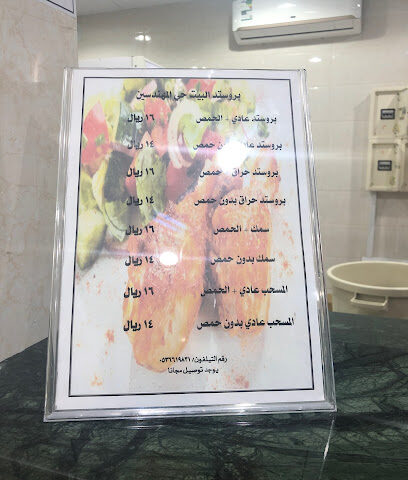 بروستد البيت حي المهندسين
بروستد عادي + الحمص ١٦ ريال
بروستد عادي بدون حمص ١٤ ريال
بروستد حراق + حمص ١٦ ريال
بروستد حراق بدون حمص ١٤ ريال
سمك + الحمص ١٦ ريال
سمك بدون حمص ١٤ ريال
المسحب عادي + الحمص ١٦ ريال
المسحب عادي بدون حمص ١٤ ريال
رقم التيلفون/ ٠٥٣٦٦١٩٨٢١
يوجد توصيل مجانا